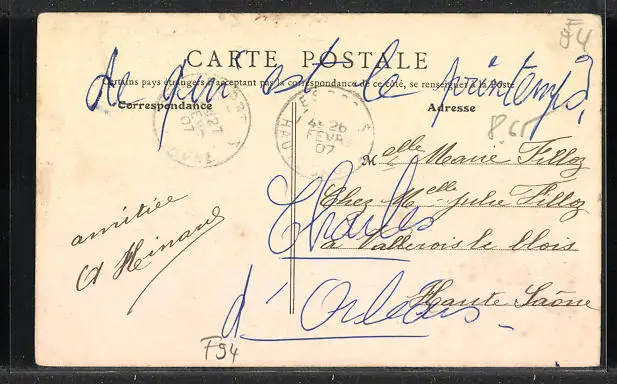 CARTE POSTALE
de quoi est le printemps?
Certains pays étrangers n'acceptant pas la correspondance de ce côté, se renseigner à la Poste
Correspondance
Adresse
F94
8.65
26
FEVR
07
27
07
Melle Marie Filloz
Chez Melle Julie Filloz
à Vallerois le Bois
Haute Saône
amitiée
Charles
d'Orléans
F94